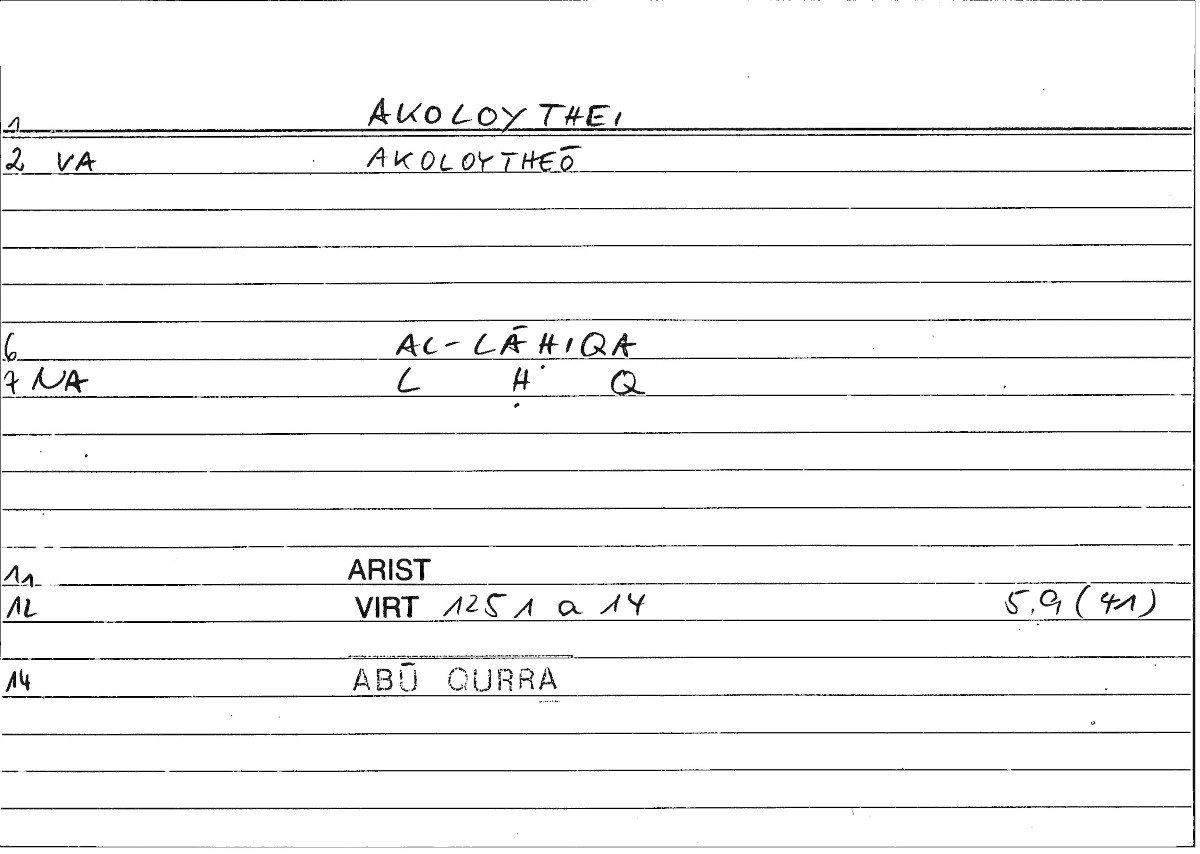 1 AKOLOYTHEI
2 VA AKOLOYTHEŌ
6 AL-LĀḤIQA
7 NA L Ḥ Q
11 ARIST
12 VIRT 1251 a 14 5.9 (41)
14 ABŪ QURRA